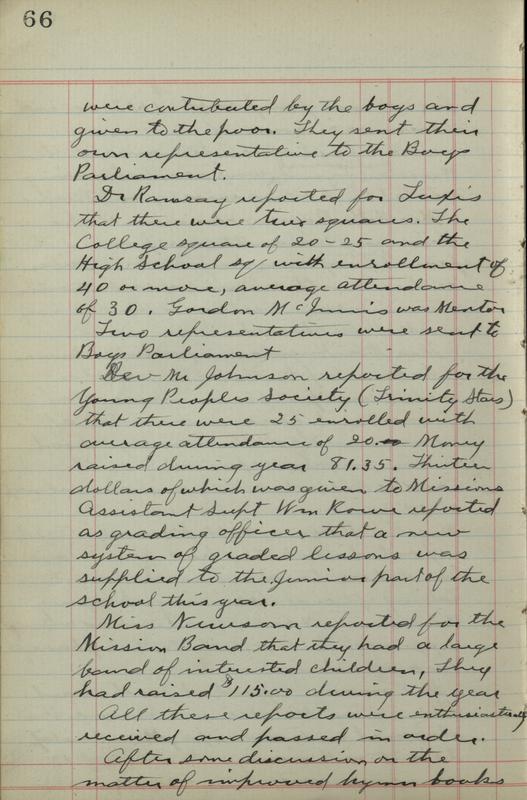 66
were contributed by the boys and
given to the poor. They sent their
own representative to the Boys
Parliament.
Dr Ramsay reported for Tuxis
that there were two squares. The
College square of 20-25 and the
High School sq/ with enrollment of
40 or more, average attendance
of 30. Gordon McInnis was Mentor
Two representatives were sent to
Boys Parliament
Rev Mr Johnson reported for the
Young Peoples Society (Trinity Stars)
that there were 25 enrolled with
average attendance of 20. Money
raised during year 81.35. Thirteen
dollars of which was given to Missions
Assistant Supt Wm Rowe reported
as grading officer that a new
system of graded lessons was
supplied to the Junior part of the
school this year.
Miss Newsom reported for the
Mission Band that they had a large
band of interested children, They
had raised $115.00 during the year
All these reports were enthusiastically
received and passed in order.
After some discussion on the
matter of improved hymn books